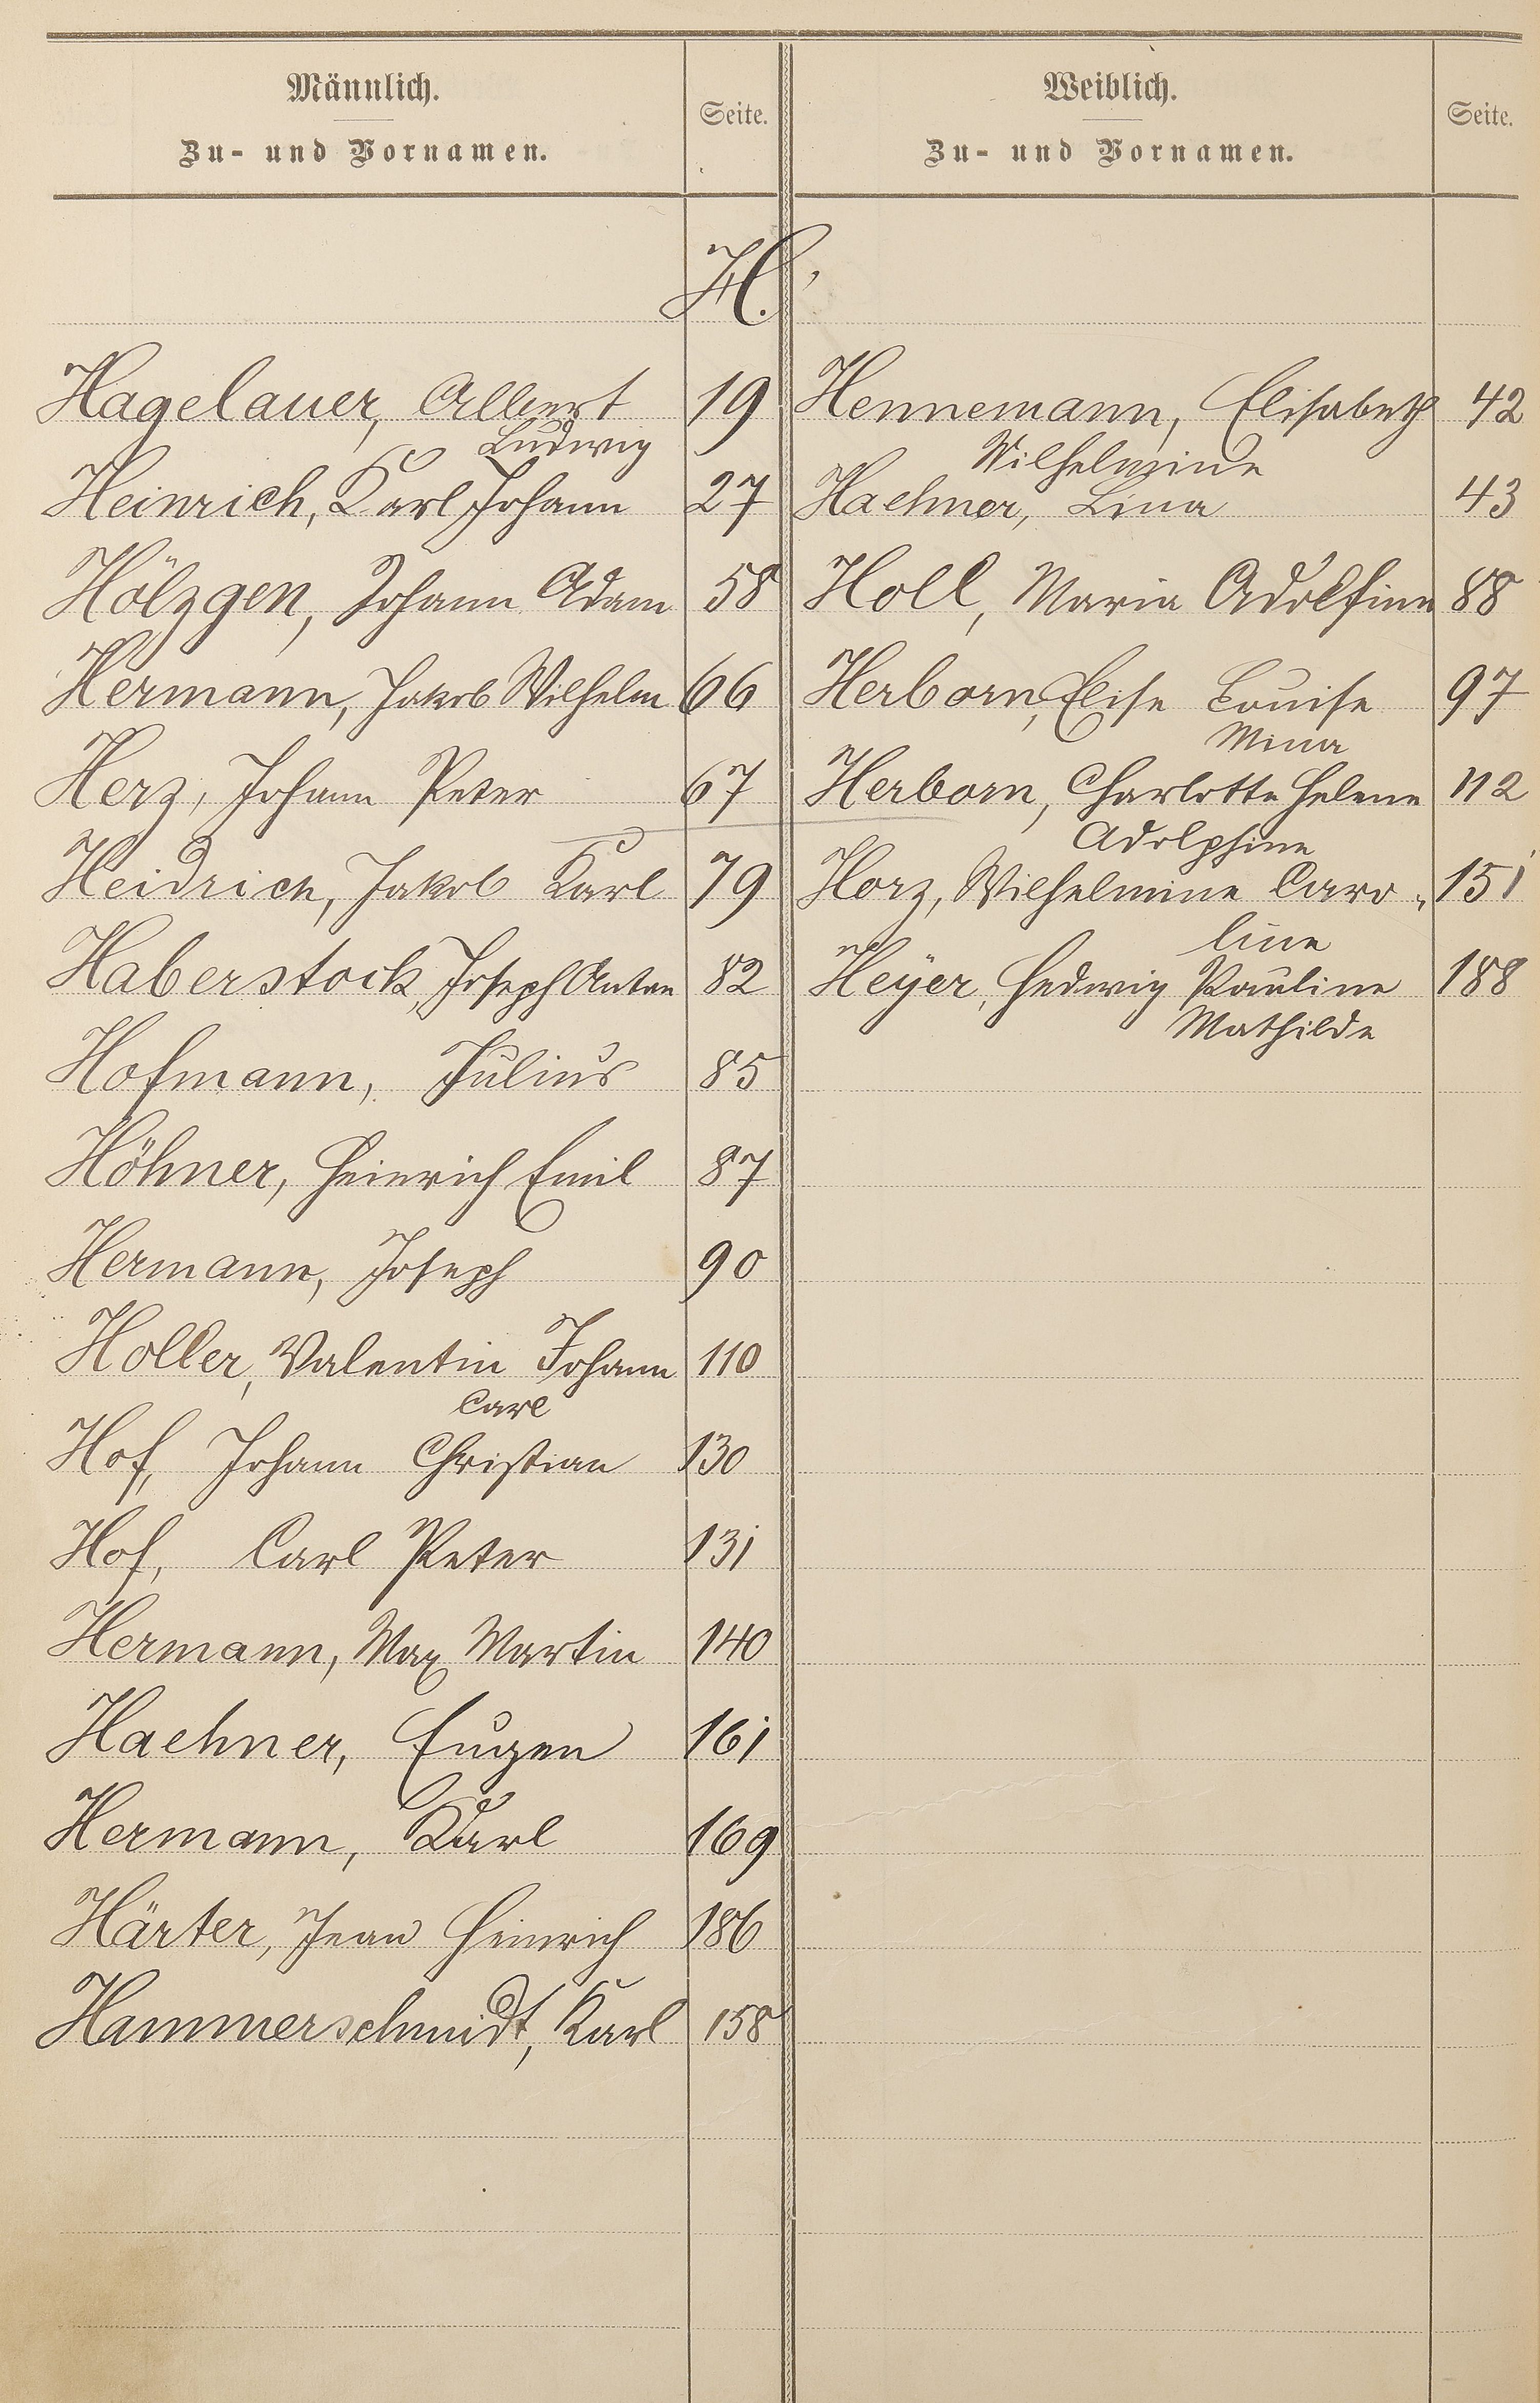 Männlich.
Zu- und Vornamen.
Seite.
Weiblich.
Zu- und Vornamen.
Seite.
H.
Hagelauer, Albert 19
Ludwig
Heinrich, Karl Johann 27
Hölzgen, Johann Adam 58
Hermann, Jakob Wilhelm 66
Herz, Johann Peter 67
Heidrich, Jakob Karl 79
Haberstock, Joseph Anton 82
Hofmann, Julius 85
Höhner, Heinrich Emil 87
Hermann, Joseph 90
Holler, Valentin Johann 110
Carl
Hof, Johann Christian 130
Hof, Carl Peter 131
Hermann, Max Martin 140
Haehner, Eugen 161
Hermann, Karl 169
Härter, Jean Heinrich 186
Hammerschmidt, Karl 158
Hennemann, Elisabeth 42
Wilhelmine
Haehner, Lina 43
Holl, Maria Adolfine 88
Herborn, Elise Louise 97
Mina
Herborn, Charlotte Helene 112
Adolphine
Horz, Wilhelmine Caro- 151
line
Heÿer, Hedwig Pauline 188
Mathilde